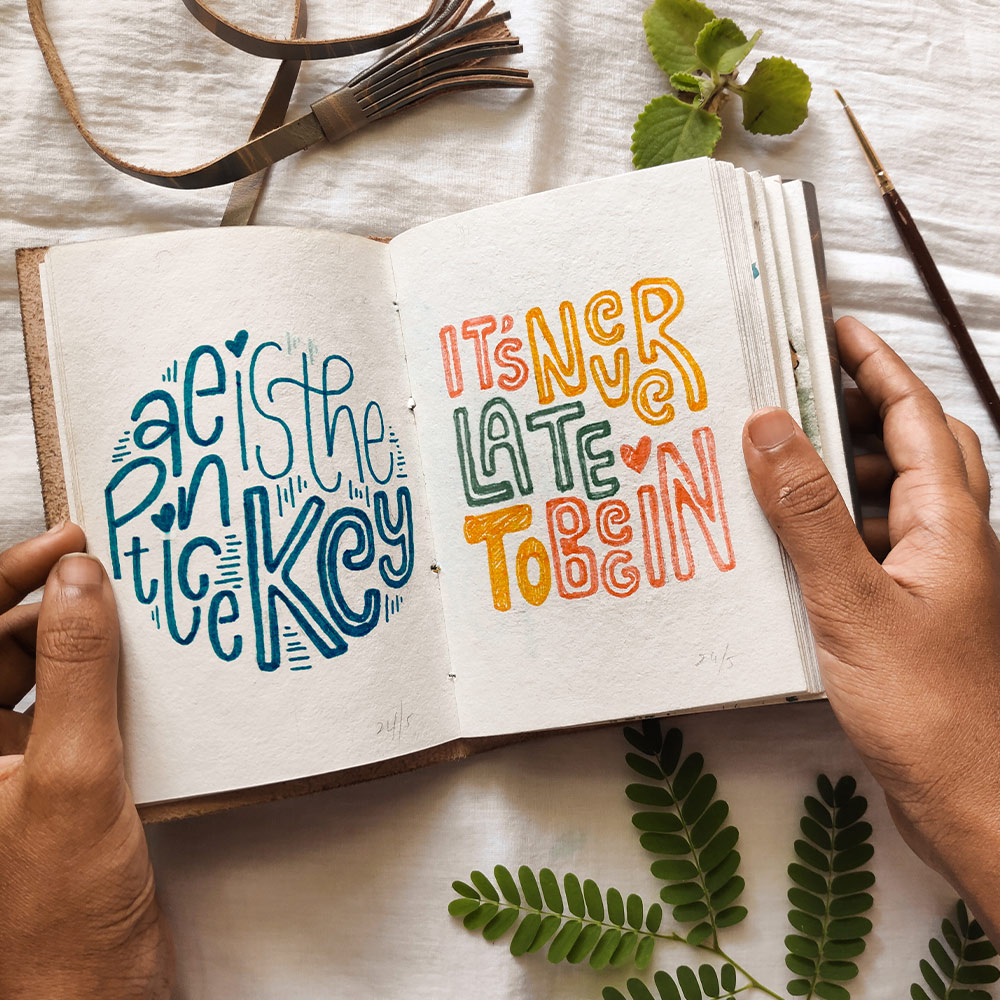 Patience is the
Key
24/5
IT'S NEVER
LATE
TO BEGIN
24/5